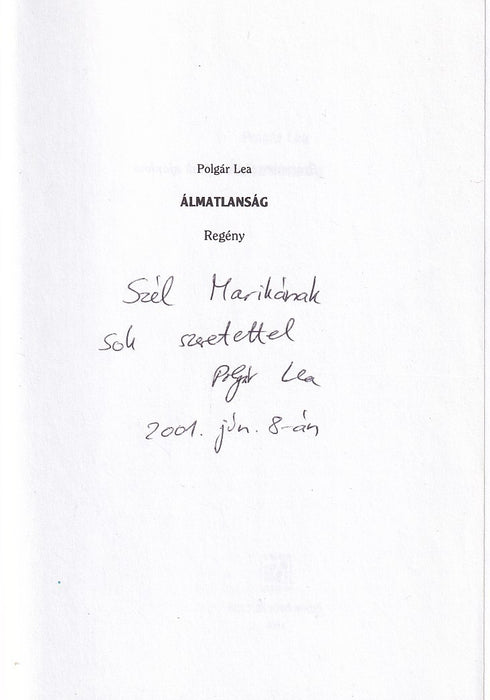 Polgár Lea
ÁLMATLANSÁG
Regény
Szél Marikának
sok szeretettel
Polgár Lea
2001. jún. 8-án